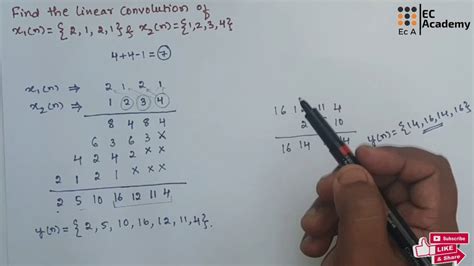 Find the Linear Convolution of
x₁(n) = {2, 1, 2, 1} & x₂(n) = {1, 2, 3, 4}
4+4-1 = 7
x₁(n) ⇒ 2 1 2 1
x₂(n) ⇒ 1 2 3 4
8 4 8 4
6 3 6 3 x
4 2 4 2 x x
2 1 2 1 x x x
2 5 10 16 12 11 4
y(n) = {2, 5, 10, 16, 12, 11, 4}.
16 12 11 4
2 10
16 14 14
y(n) = {14, 16, 14, 16}
EC
Academy
Ec A
Subscribe
LIKE
& Share